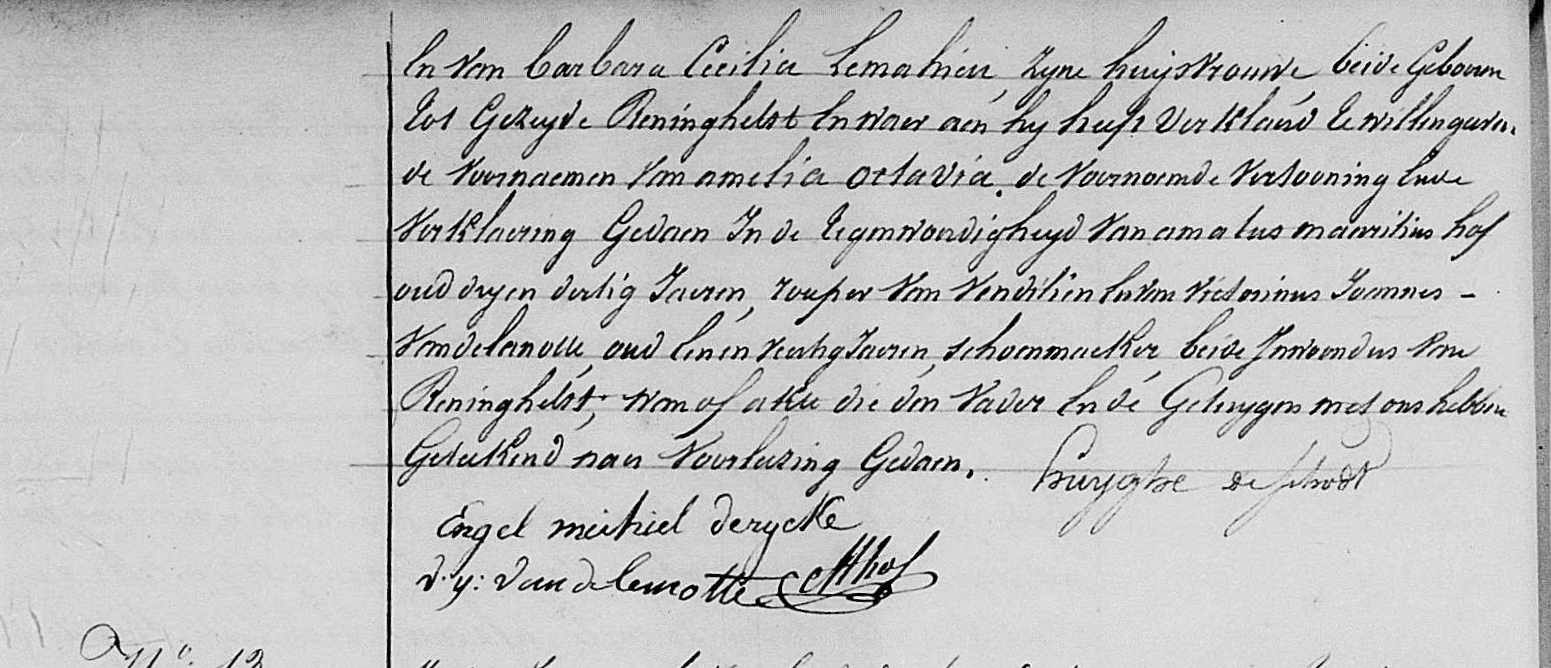 En van barbara Cecilia Lemahieu, zyne huysvrouwe, beide Geboren
tot Gezeyde Reninghelst En waer aen hy heeft Verklaerd te willen geven
de Voornaemen van amelia octavia. de Voornoemde Vertooning Ende
Verklaering Gedaen In de tegenwoordigheyd Van amatus mauritius hof
oud dry en dertig Jaeren, Van Ende Van Victorinus Joannes -
Vandelanotte, oud Een en Veertig Jaeren, schoenmaeker, beide Inwoonders Van
Reninghelst, van of akte die den Vader En de Getuygen met ons hebben
Geteekend naer Voorlezing Gedaen.
huyghe de schodt
Engel meihiel derycke
v. y: van de lanotte AM hof
N°. 12